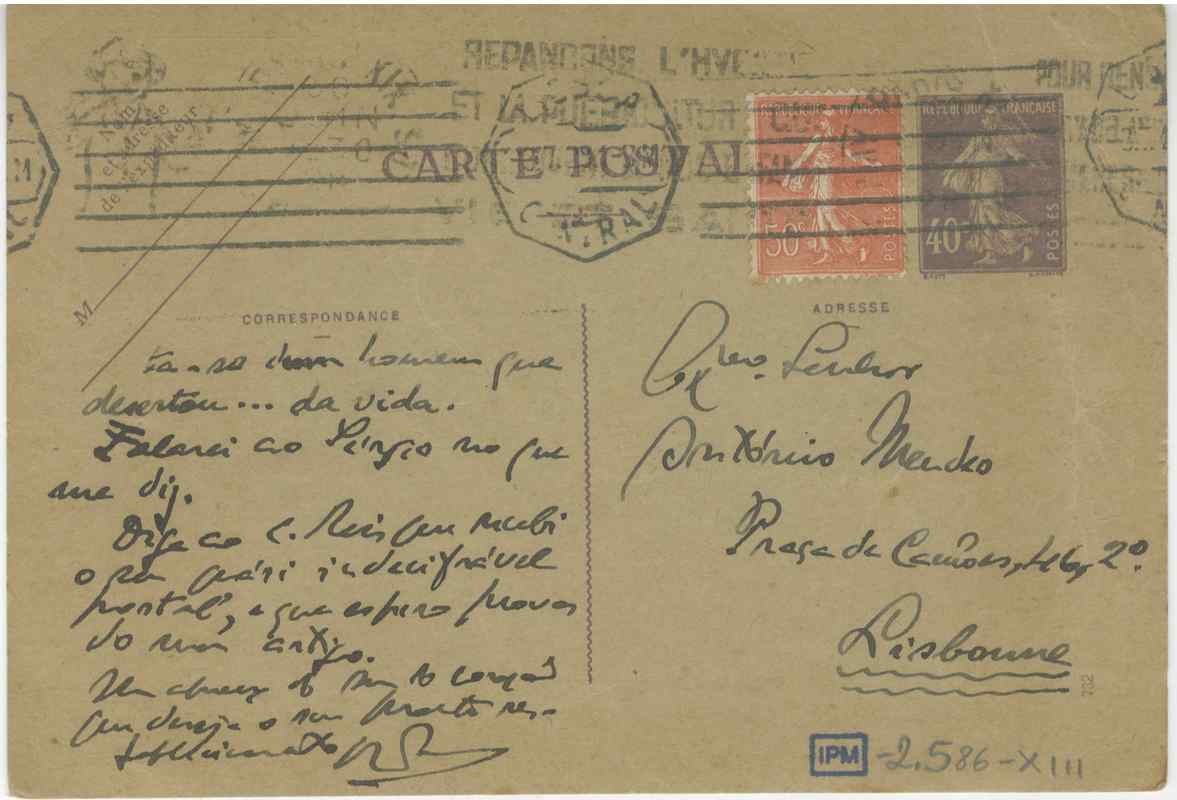 REPANDONS L'HY
ET LA PUERICULTUR
POUR
Nom
et adresse
de l'expéditeur
M
CARTE POSTALE
CENTRAL
REPUBLIQUE FRANÇAISE
50c
POSTES
REPUBLIQUE FRANÇAISE
40c
POSTES
CORRESPONDANCE
homem que
desertou... da vida.
Falarei ao Sérgio no que
me diz.
Diga ao C. Reis que recebi
o seu quási indecifrável
postal, e que espero provas
do meu artigo.
Um abraço do
que deseja o seu pronto res-
tabelecimento
ADRESSE
Exmo. Senhor
António
Praça de Camões, 46, 2º.
Lisbonne
732
IPM -2.586-XIII